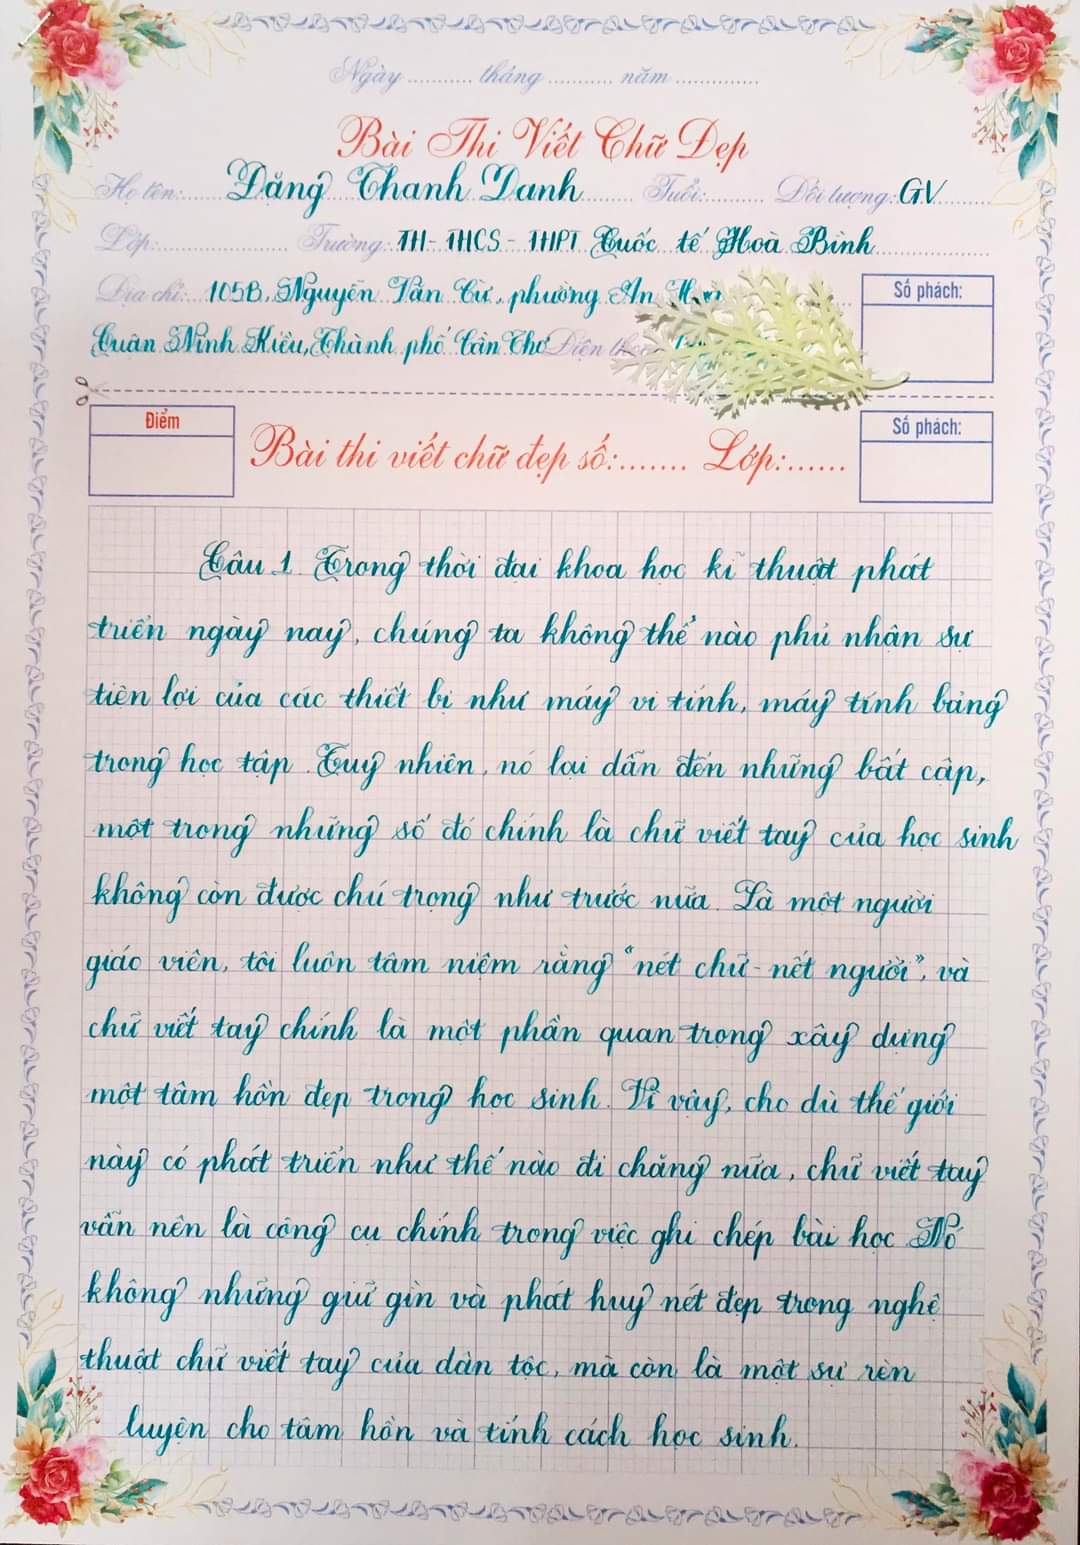 Ngày ........... tháng ........... năm ..............
Bài Thi Viết Chữ Đẹp
Họ tên:.... Đặng Thanh Danh ........ Tuổi:.......... Đối tượng: GV ........
Lớp:...................... Trường: TH - THCS - THPT Quốc tế Hoà Bình ....................
Địa chỉ: 105B, Nguyễn Văn Cừ, phường An
Số phách:
Quận Ninh Kiều, Thành phố Cần Thơ Điện
Điểm
Bài thi viết chữ đẹp số:....... Lớp:......
Số phách:
Câu 1. Trong thời đại khoa học kĩ thuật phát
triển ngày nay, chúng ta không thể nào phủ nhận sự
tiện lợi của các thiết bị như máy vi tính, máy tính bảng
trong học tập. Tuy nhiên, nó lại dẫn đến những bất cập,
một trong những số đó chính là chữ viết tay của học sinh
không còn được chú trọng như trước nữa. Là một người
giáo viên, tôi luôn tâm niệm rằng "nét chữ - nết người", và
chữ viết tay chính là một phần quan trọng xây dựng
một tâm hồn đẹp trong học sinh. Vì vậy, cho dù thế giới
này có phát triển như thế nào đi chăng nữa, chữ viết tay
vẫn nên là công cụ chính trong việc ghi chép bài học. Nó
không những giữ gìn và phát huy nét đẹp trong nghệ
thuật chữ viết tay của dân tộc, mà còn là một sự rèn
luyện cho tâm hồn và tính cách học sinh.